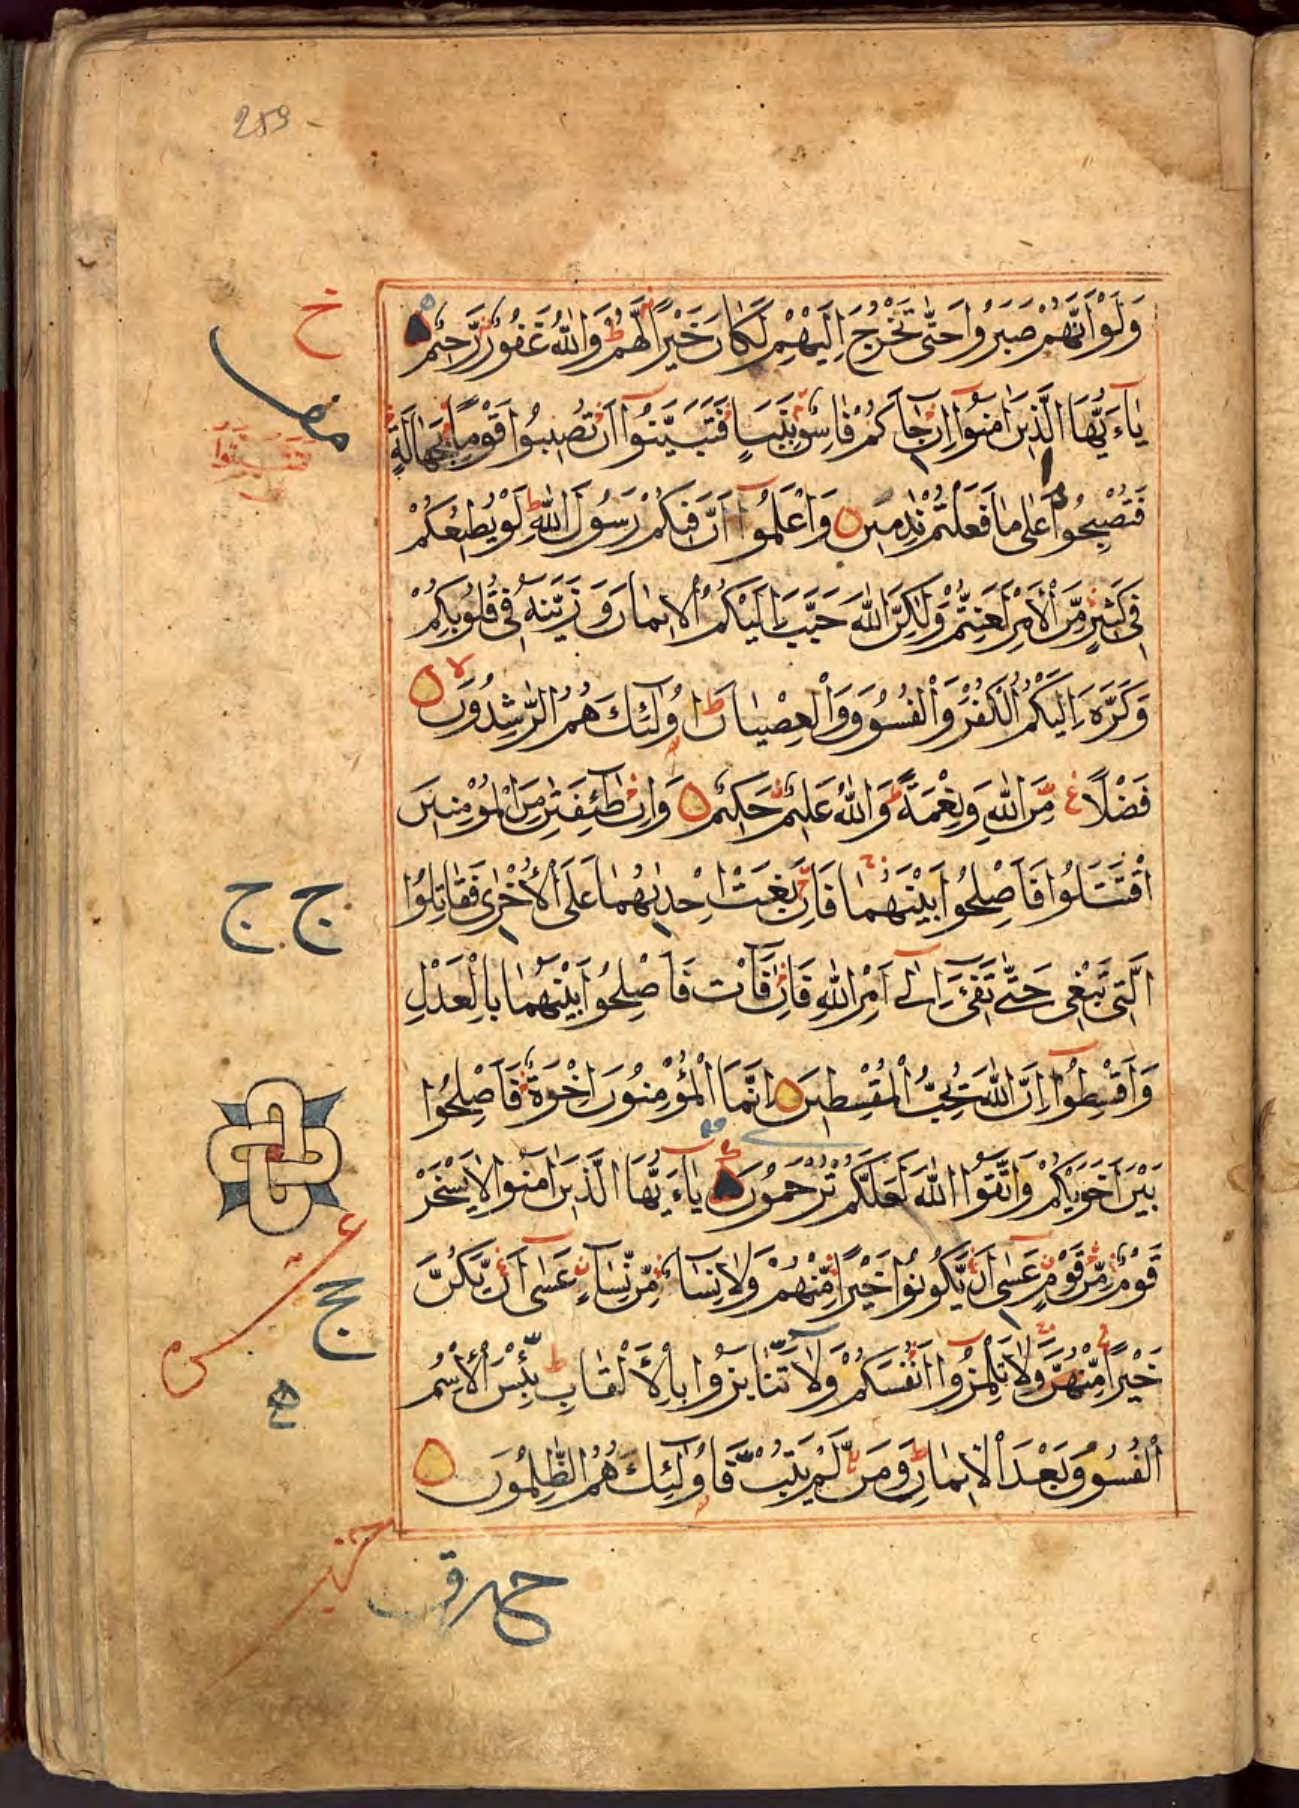 259
وَلَوْ اَنَّهُمْ صَبَرُوا حَتّٰى تَخْرُجَ اِلَيْهِمْ لَكَانَ خَيْرًا لَّهُمْ ط وَاللّٰهُ غَفُوْرٌ رَّحِيْمٌ
خ
يٰاءَيُّهَا الَّذِيْنَ اٰمَنُوْا اِنْ جَاءَكُمْ فَاسِقٌ بِنَبَاٍ فَتَبَيَّنُوْا اَنْ تُصِيْبُوا قَوْمًا بِجَهَالَةٍ
فَتُصْبِحُوْا عَلٰى مَا فَعَلْتُمْ نٰدِمِيْنَ وَاعْلَمُوْا اَنَّ فِيْكُمْ رَسُوْلَ اللّٰهِ ط لَوْ يُطِيْعُكُمْ
فِى كَثِيْرٍ مِّنَ الْاَمْرِ لَعَنِتُّمْ وَلٰكِنَّ اللّٰهَ حَبَّبَ اِلَيْكُمُ الْاِيْمَانَ وَزَيَّنَهُ فِى قُلُوْبِكُمْ
وَكَرَّهَ اِلَيْكُمُ الْكُفْرَ وَالْفُسُوْقَ وَالْعِصْيَانَ ط اُولٰئِكَ هُمُ الرّٰشِدُوْنَ لا
فَضْلًا مِّنَ اللّٰهِ وَنِعْمَةً ط وَاللّٰهُ عَلِيْمٌ حَكِيْمٌ وَاِنْ طَائِفَتٰنِ مِنَ الْمُؤْمِنِيْنَ
اقْتَتَلُوا فَاَصْلِحُوا بَيْنَهُمَا فَاِنْ بَغَتْ اِحْدٰىهُمَا عَلَى الْاُخْرٰى فَقَاتِلُوا
ج ج
الَّتِى تَبْغِى حَتّٰى تَفِىْءَ اِلٰى اَمْرِ اللّٰهِ فَاِنْ فَاءَتْ فَاَصْلِحُوا بَيْنَهُمَا بِالْعَدْلِ
وَاَقْسِطُوْا اِنَّ اللّٰهَ يُحِبُّ الْمُقْسِطِيْنَ اِنَّمَا الْمُؤْمِنُوْنَ اِخْوَةٌ فَاَصْلِحُوا
بَيْنَ اَخَوَيْكُمْ وَاتَّقُوا اللّٰهَ لَعَلَّكُمْ تُرْحَمُوْنَ يٰاءَيُّهَا الَّذِيْنَ اٰمَنُوا لَا يَسْخَرْ
قَوْمٌ مِّنْ قَوْمٍ عَسٰى اَنْ يَّكُوْنُوْا خَيْرًا مِّنْهُمْ وَلَا نِسَاءٌ مِّنْ نِّسَاءٍ عَسٰى اَنْ يَّكُنَّ
ج
خَيْرًا مِّنْهُنَّ وَلَا تَلْمِزُوْا اَنْفُسَكُمْ وَلَا تَنَابَزُوا بِالْاَلْقَابِ ط بِئْسَ الْاِسْمُ
الْفُسُوْقُ بَعْدَ الْاِيْمَانِ ط وَمَنْ لَّمْ يَتُبْ فَاُولٰئِكَ هُمُ الظّٰلِمُوْنَ